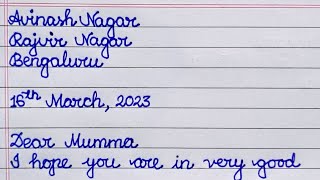 Avinash Nagar
Rajvir Nagar
Bengaluru
16th March, 2023
Dear Mumma
I hope you are in very good